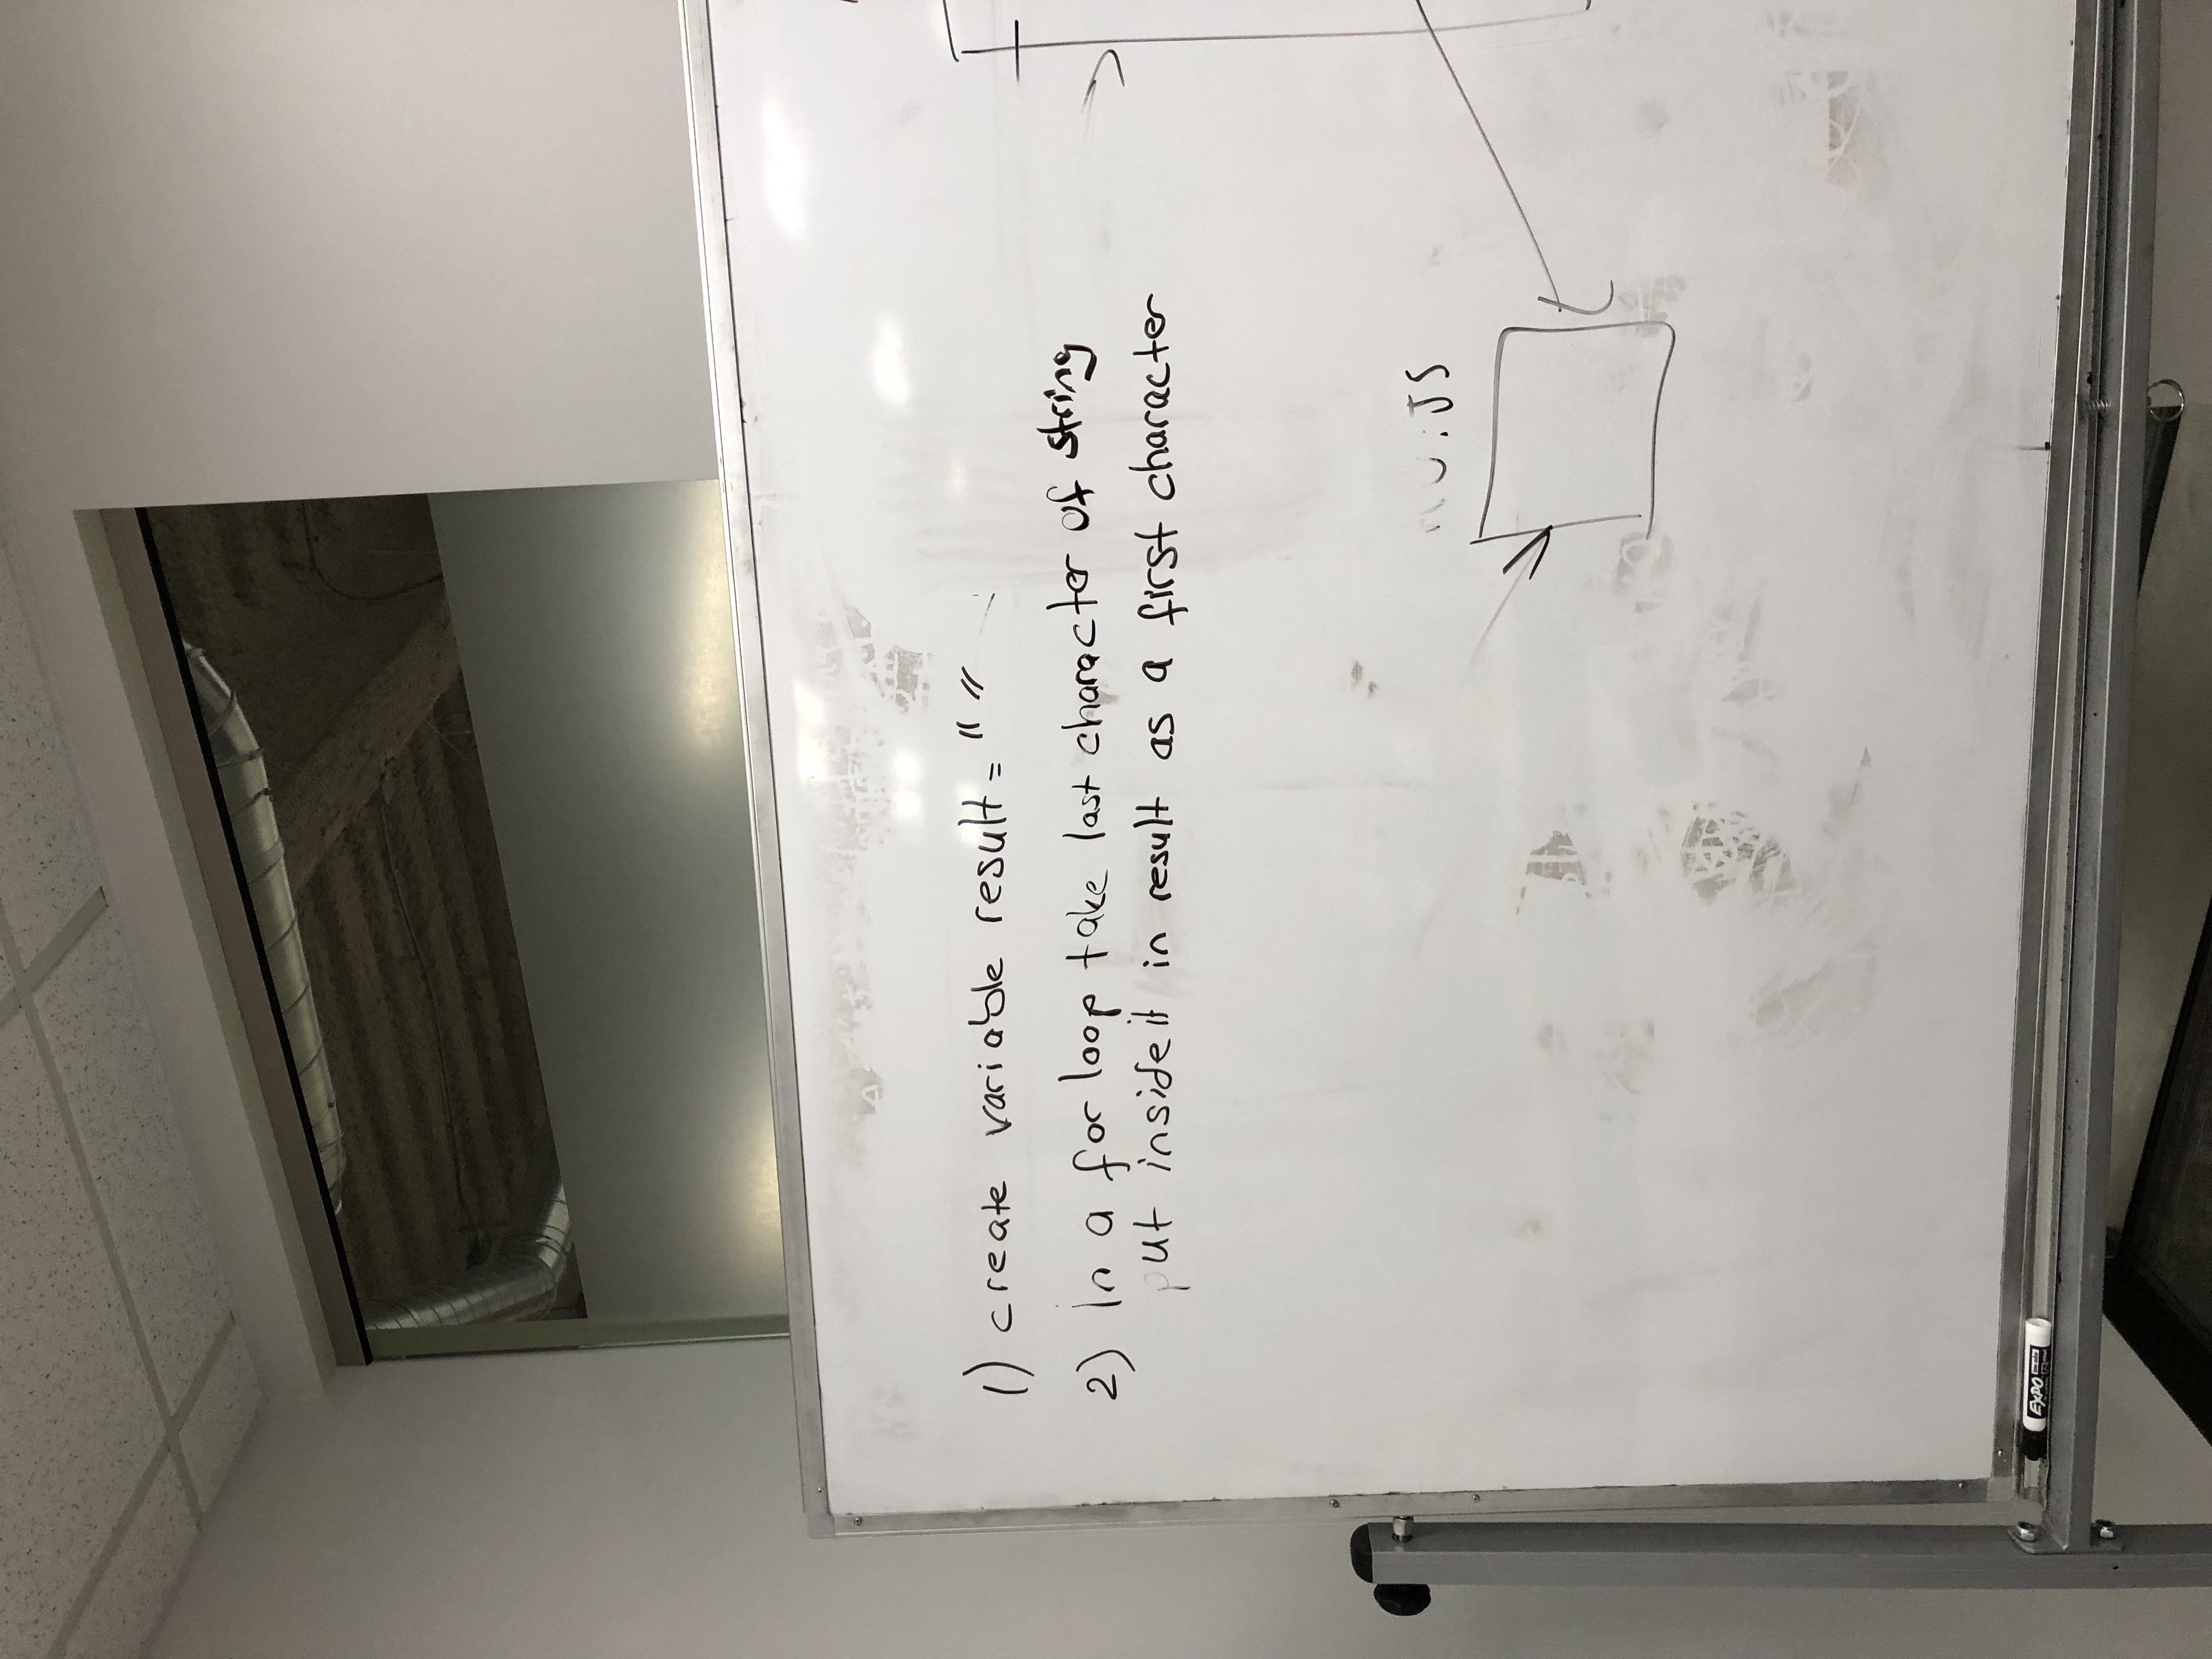 1) create variable result = " "
2) In a for loop take last character of string
put inside it in result as a first character
.JS
EXPO